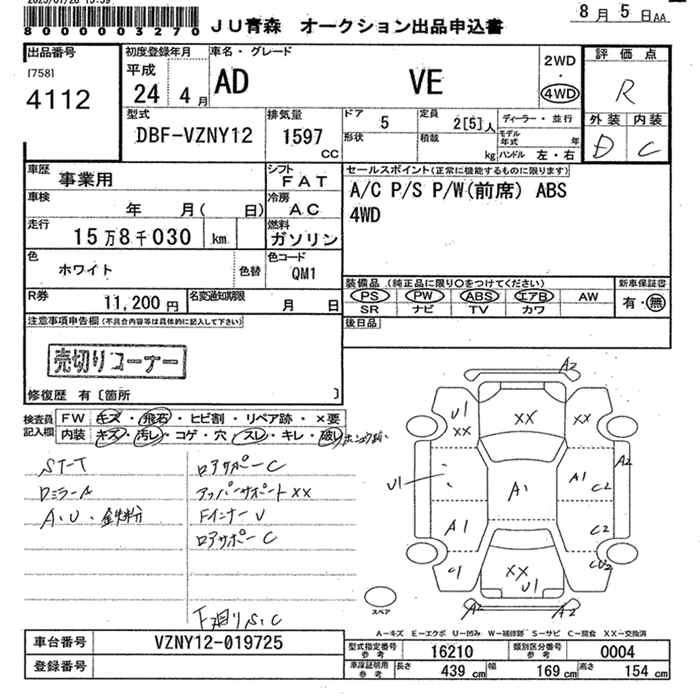 8000003270
JU青森 オークション出品申込書
8月5日AA
出品番号
[758]
4112
初度登録年月
平成
24 4月
車名・グレード
AD VE
2WD
・
4WD
評価点
R
外装 内装
D C
型式
DBF-VZNY12
排気量
1597
cc
ドア
5
形状
定員
2[5]人
積載
kg
ディーラー・並行
モデル年式 年
ハンドル 左・右
車歴
事業用
シフト
FAT
車検
年 月( 日)
冷房
AC
走行
15万8千030 km
燃料
ガソリン
色
ホワイト
色替
色コード
QM1
R券
11,200円
名変通知期限
月 日
セールスポイント(正常に機能するものに限ります)
A/C P/S P/W(前席) ABS
4WD
装備品 (純正品に限り○をつけてください)
PS PW ABS エアB AW
SR ナビ TV カワ
新車保証書
有・無
後日品
注意事項申告欄(不具合内容等は具体的に記入して下さい)
売切りコーナー
修復歴 有〔箇所 〕
検査員
記入欄
FW キズ・飛石・ヒビ割・リペア跡・×要
内装 キズ・汚レ・コゲ・穴・スレ・キレ・破レ
ST-T
Dミラー
A.U.・鉄粉
ロアサポーC
アッパーサポートXX
FインナーU
ロアサポーC
下廻りS.C
A2
U1
XX
XX
XX
U1
A1
A1
C2
A2
A1
C2
XX
U1
A2
A2
スペア
A-キズ E-エクボ U-凹み W-補修跡 S-サビ C-腐食 XX-交換済
車台番号
VZNY12-019725
登録番号
型式指定番号
参考
16210
類別区分番号
参考
0004
車庫証明用
参考
長さ 439 cm
幅 169 cm
高さ 154 cm